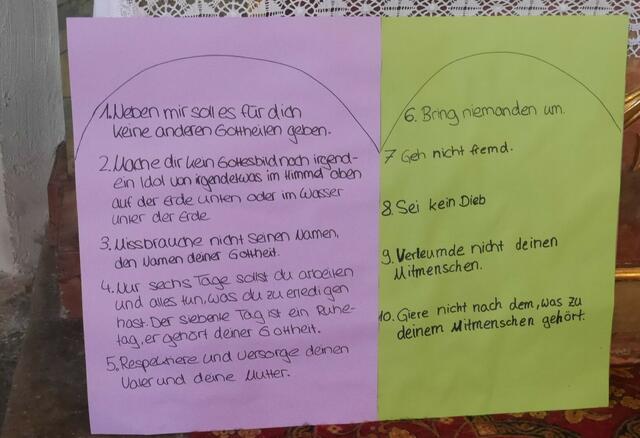 1. Neben mir soll es für dich
keine anderen Gottheiten geben.
2. Mache dir kein Gottesbild noch irgend-
ein Idol von irgendetwas im Himmel oben
auf der Erde unten oder im Wasser
unter der Erde
3. Missbrauche nicht seinen Namen,
den Namen deiner Gottheit.
4. Nur sechs Tage sollst du arbeiten
und alles tun, was du zu erledigen
hast. Der siebente Tag ist ein Ruhe-
tag, er gehört deiner Gottheit.
5. Respektiere und versorge deinen
Vater und deine Mutter.
6. Bring niemanden um.
7 Geh nicht fremd.
8. Sei kein Dieb
9. Verleumde nicht deinen
Mitmenschen.
10. Giere nicht nach dem, was zu
deinem Mitmenschen gehört.